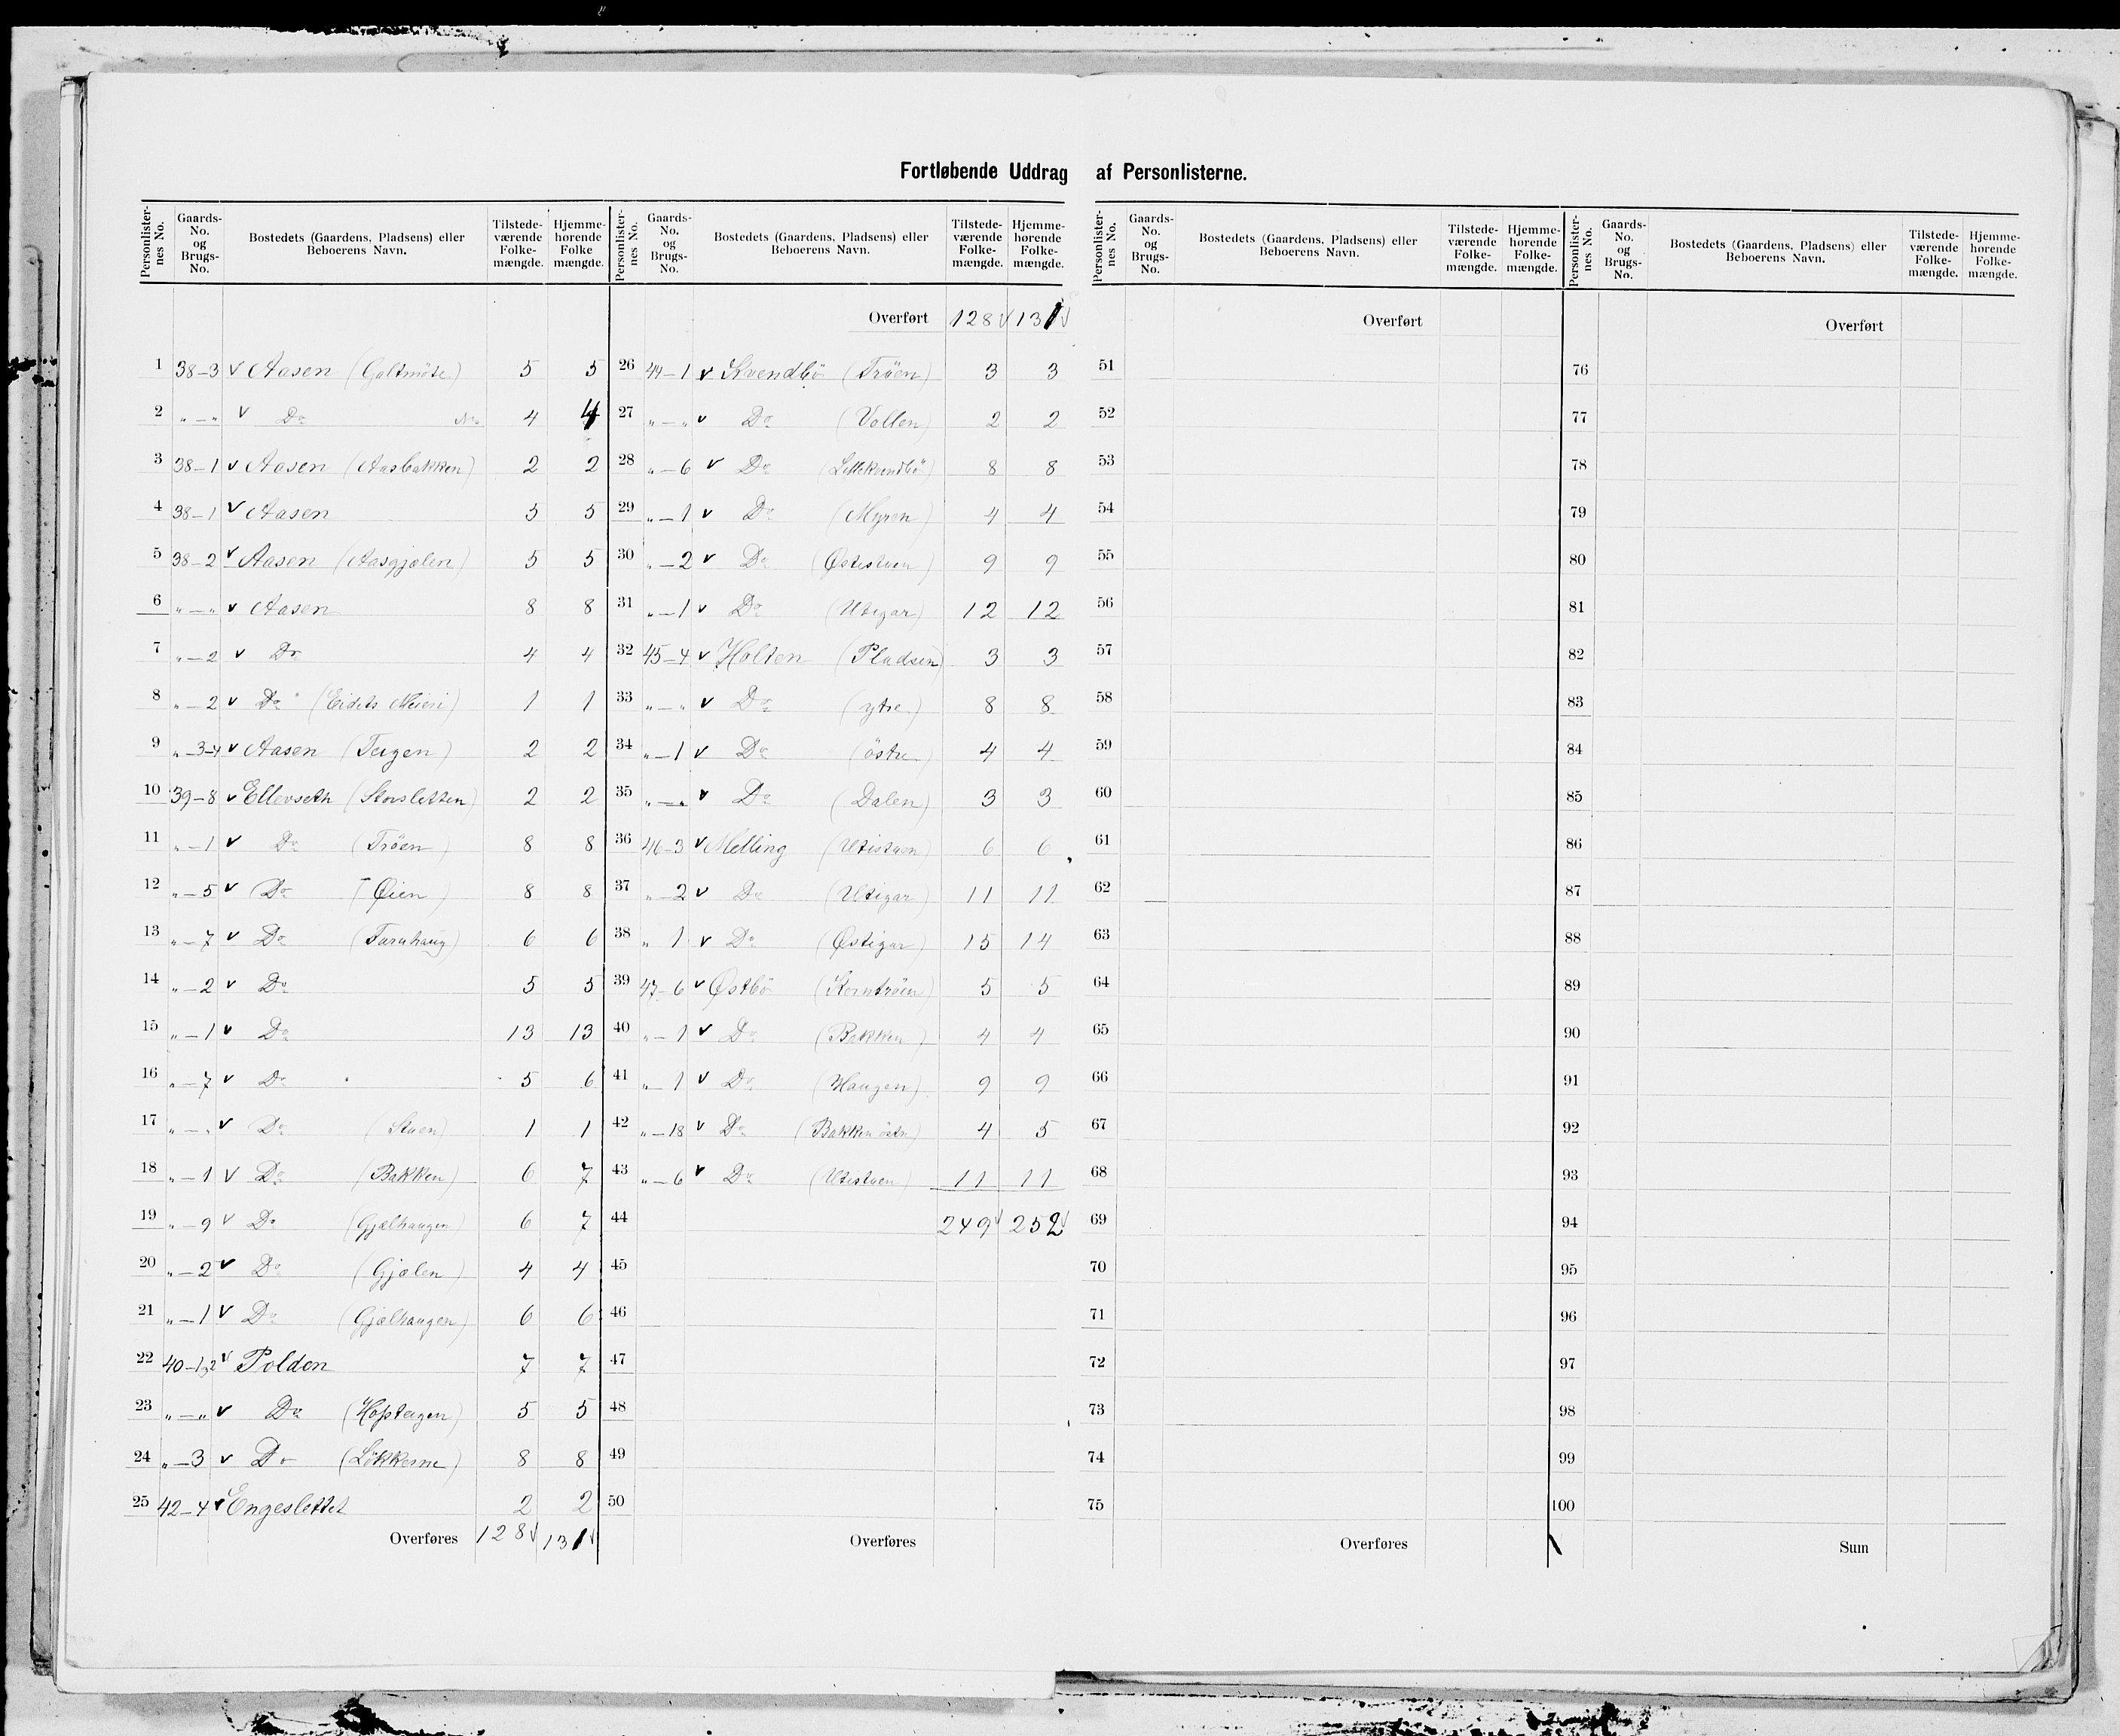 Fortløbende Uddrag af Personlisterne.
Personlister-nes No. Gaards-No. og Brugs-No. Bostedets (Gaardens, Pladsens) eller Beboerens Navn. Tilstede-værende Folke-mængde. Hjemme-hørende Folke-mængde.
1 38-3 v Aasen (Galtmöte) 5 5
2 „-„ v Do Do 4 4
3 38-1 v Aasen (Aasbakken) 2 2
4 38-1 v Aasen 5 5
5 38-2 v Aasen (Aasgjølen) 5 5
6 „-„ v Aasen 8 8
7 „-2 v Do 4 4
8 „-2 v Do (Eidets Meieri) 1 1
9 „-3-4 v Aasen (Teigen) 2 2
10 39-8 v Ellevseth (Storsletten) 2 2
11 „-1 v Do (Trøen) 8 8
12 „-5 v Do (Øien) 8 8
13 „-7 v Do (Tarnhaug) 6 6
14 „-2 v Do 5 5
15 „-1 v Do 13 13
16 „-7 v Do 5 6
17 „-„ v Do (Stuen) 1 1
18 „-1 v Do (Bakken) 6 7
19 „-9 v Do (Gjælhaugen) 6 7
20 „-2 v Do (Gjølen) 4 4
21 „-1 v Do (Gjælhaugen) 6 6
22 40-1,2 v Polden 7 7
23 „-„ v Do (Hopteigen) 5 5
24 „-3 v Do (Løkkerne) 8 8
25 42-4 v Engeslettet 2 2
Overføres 128 v 131 v
Personlister-nes No. Gaards-No. og Brugs-No. Bostedets (Gaardens, Pladsens) eller Beboerens Navn. Tilstede-værende Folke-mængde. Hjemme-hørende Folke-mængde.
Overført 128 v 131 v
26 44-1 v Kvendbö (Trøen) 3 3
27 „-„ v Do (Vollen) 2 2
28 „-6 v Do (Lillekvendbö) 8 8
29 „-1 v Do (Myren) 4 4
30 „-2 v Do (Østistuen) 9 9
31 „-1 v Do (Utigar) 12 12
32 45-4 v Holten (Pladsen) 3 3
33 „-„ v Do (ytre) 8 8
34 „-1 v Do (östre) 4 4
35 „-„ v Do (Dalen) 3 3
36 46-3 v Melling (Utistuen) 6 6
37 „-2 v Do (Utigar) 11 11
38 „ 1 v Do (Østigar) 15 14
39 47-6 v Østbö (Korntrøen) 5 5
40 „-1 v Do (Bakken) 4 4
41 „ 1 v Do (Haugen) 9 9
42 „-18 v Do (Bakken östre) 4 5
43 „-6 v Do (Utistuen) 11 11
44 249 v 252 v
45
46
47
48
49
50
Overføres
Personlister-nes No. Gaards-No. og Brugs-No. Bostedets (Gaardens, Pladsens) eller Beboerens Navn. Tilstede-værende Folke-mængde. Hjemme-hørende Folke-mængde.
Overført
51
52
53
54
55
56
57
58
59
60
61
62
63
64
65
66
67
68
69
70
71
72
73
74
75
Overføres
Personlister-nes No. Gaards-No. og Brugs-No. Bostedets (Gaardens, Pladsens) eller Beboerens Navn. Tilstede-værende Folke-mængde. Hjemme-hørende Folke-mængde.
Overført
76
77
78
79
80
81
82
83
84
85
86
87
88
89
90
91
92
93
94
95
96
97
98
99
100
Sum